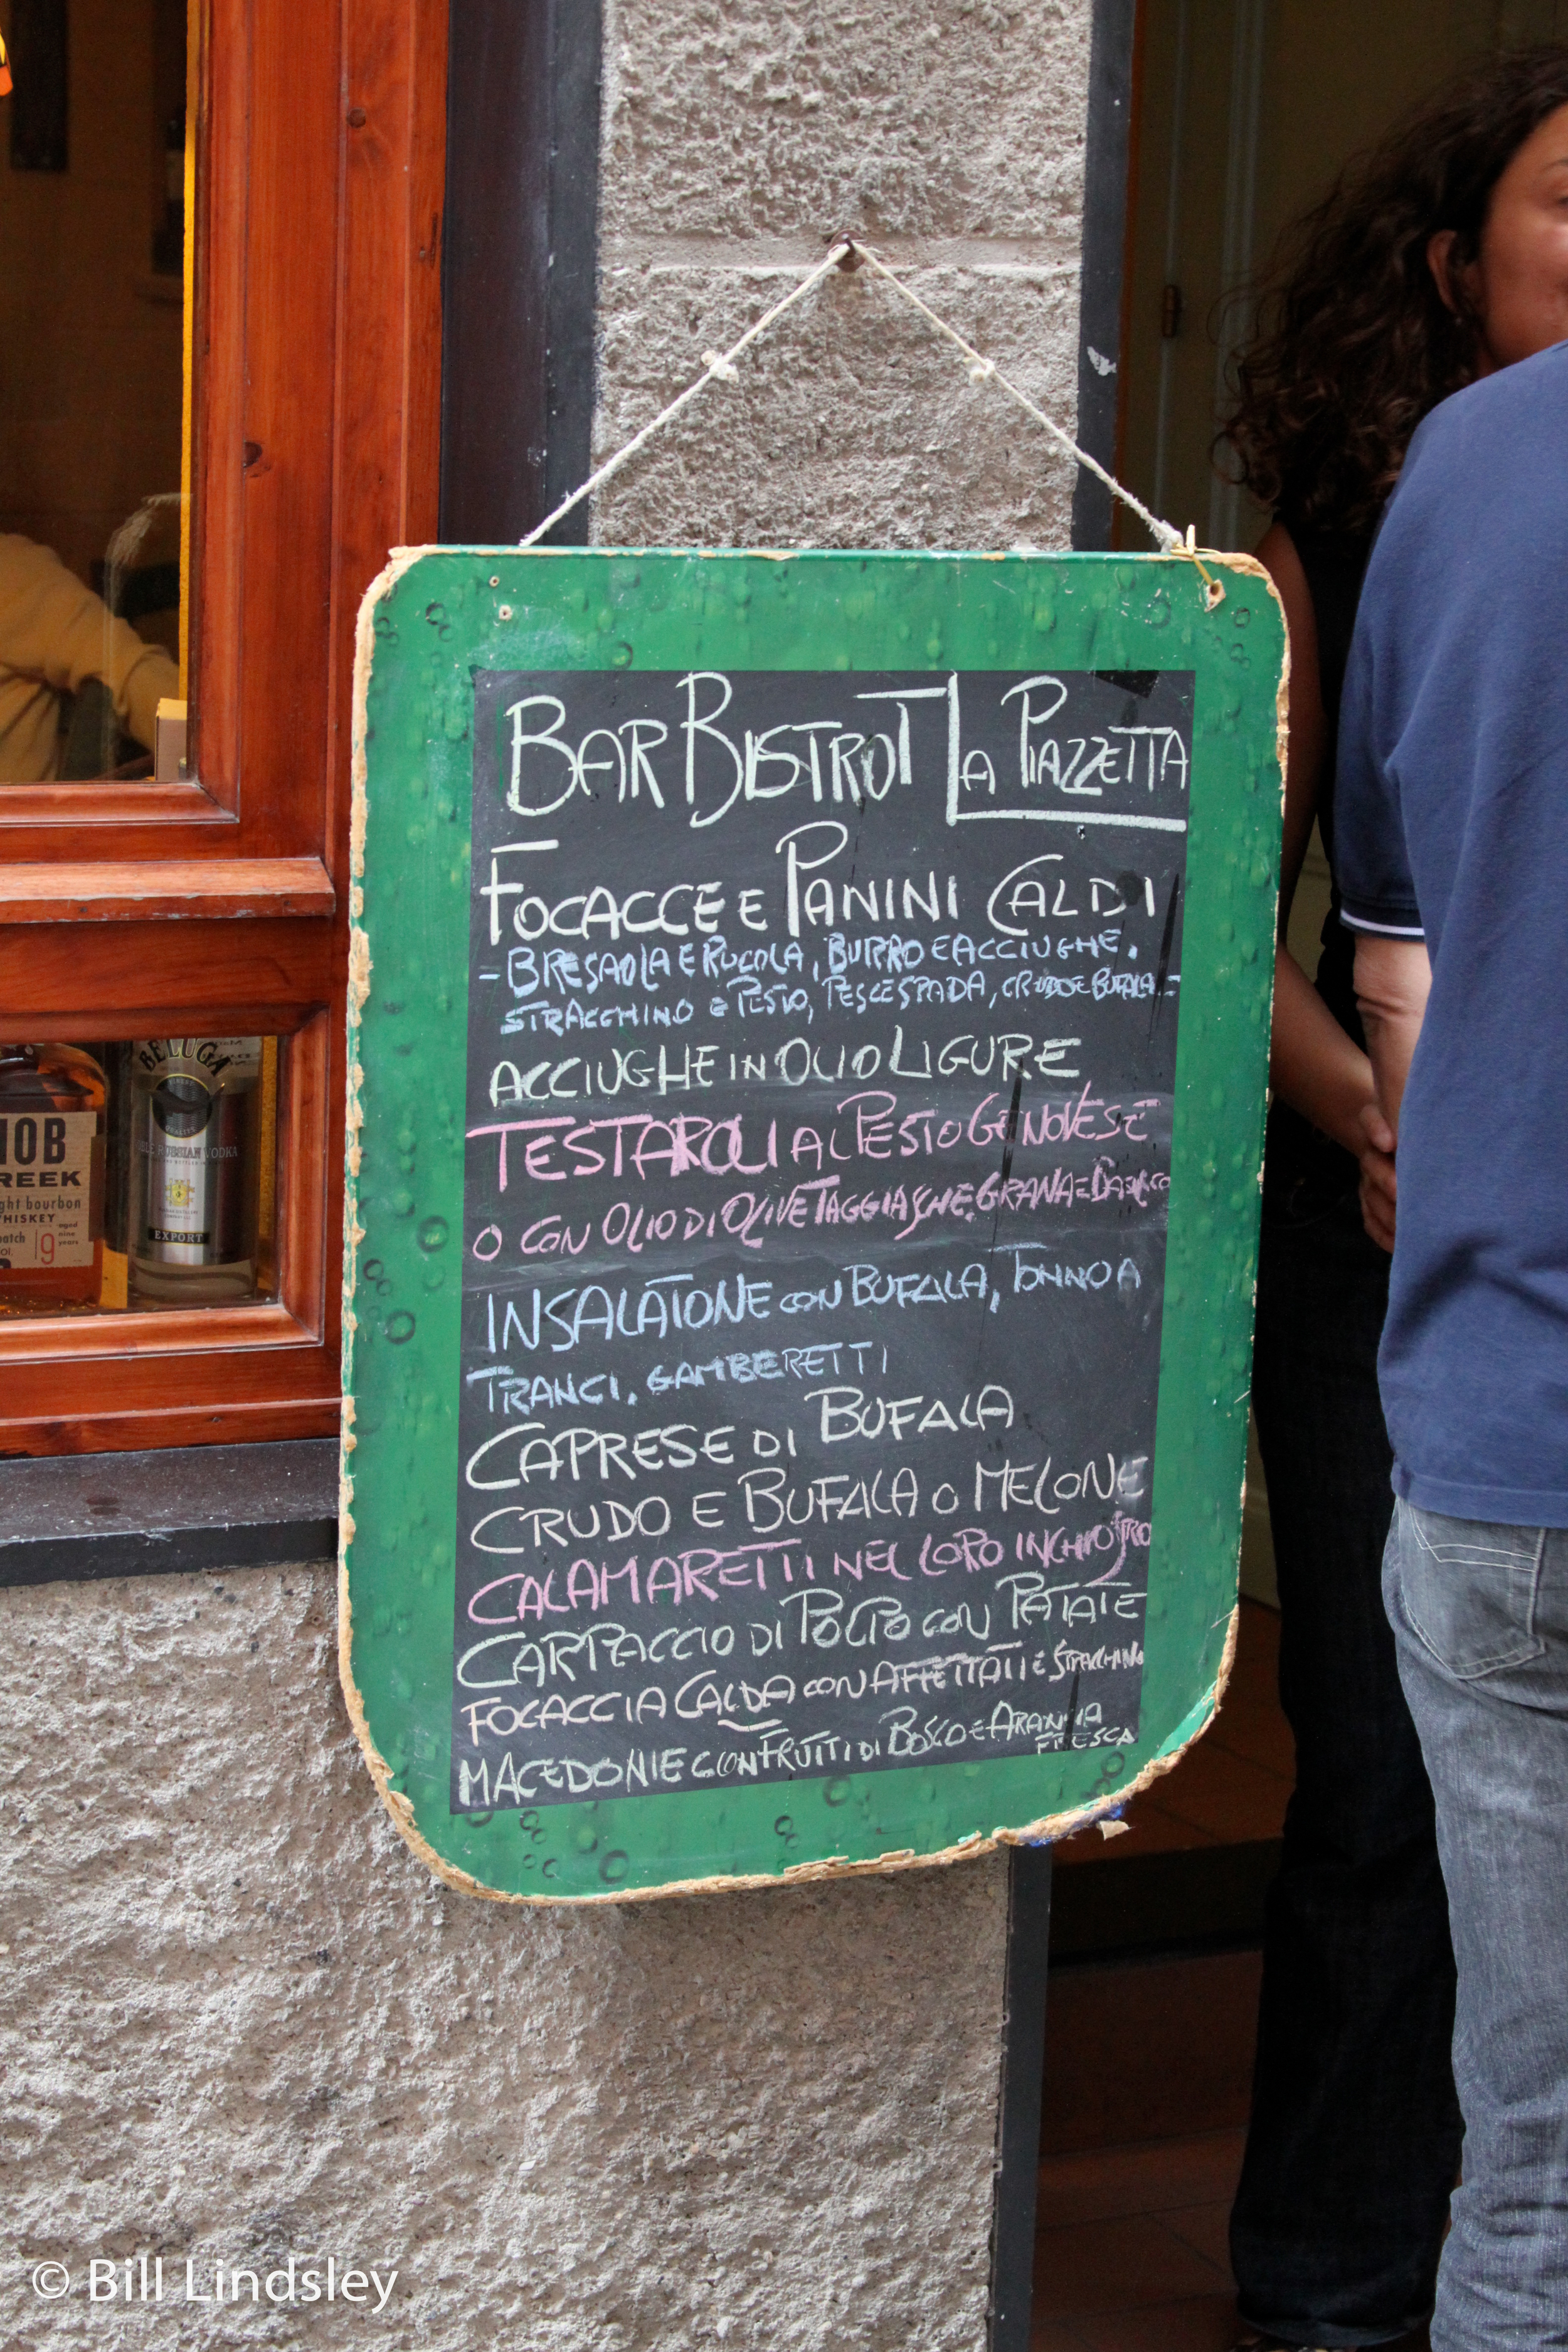 BAR BISTROT LA PIAZZETTA
FOCACCE E PANINI CALDI
- BRESAOLA E RUCOLA, BURRO E ACCIUGHE.
STRACCHINO E PESTO, PESCESPADA, CRUDO E BUFALA -
ACCIUGHE IN OLIO LIGURE
TESTAROLI AL PESTO GENOVESE
O CON OLIO DI OLIVE TAGGIASCHE, GRANA E
INSALATONE CON BUFALA, TONNO A
TRANCI, GAMBERETTI
CAPRESE DI BUFALA
CRUDO E BUFALA O MELONE
CALAMARETTI NEL LORO INCHIOSTRO
CARPACCIO DI POLPO CON PATATE
FOCACCIA CALDA CON AFFETTATI E STRACCHINO
MACEDONIE CON FRUTTI DI BOSCO E ARANCIA
FRESCA
BELUGA
EXPORT
RUSSIAN VODKA
NOB
REEK
ght bourbon
WHISKEY
aged
nine
years
batch
9
© Bill Lindsley